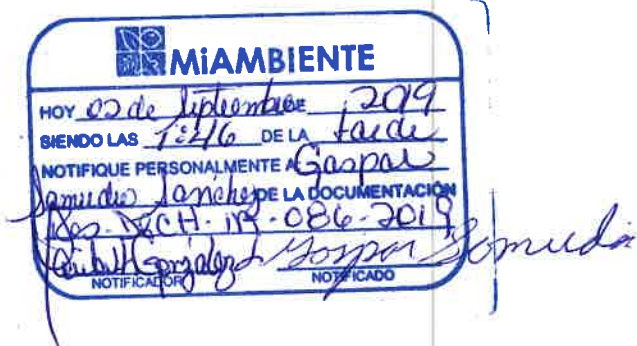 MiAMBIENTE
HOY 02 de Septiembre 2019
SIENDO LAS 1:46 DE LA tarde
NOTIFIQUE PERSONALMENTE A Gaspar
Samudio Sanchez DE LA DOCUMENTACIÓN
Res. DRCH-IA-086-2019
González Gaspar Samudio
NOTIFICADOR NOTIFICADO